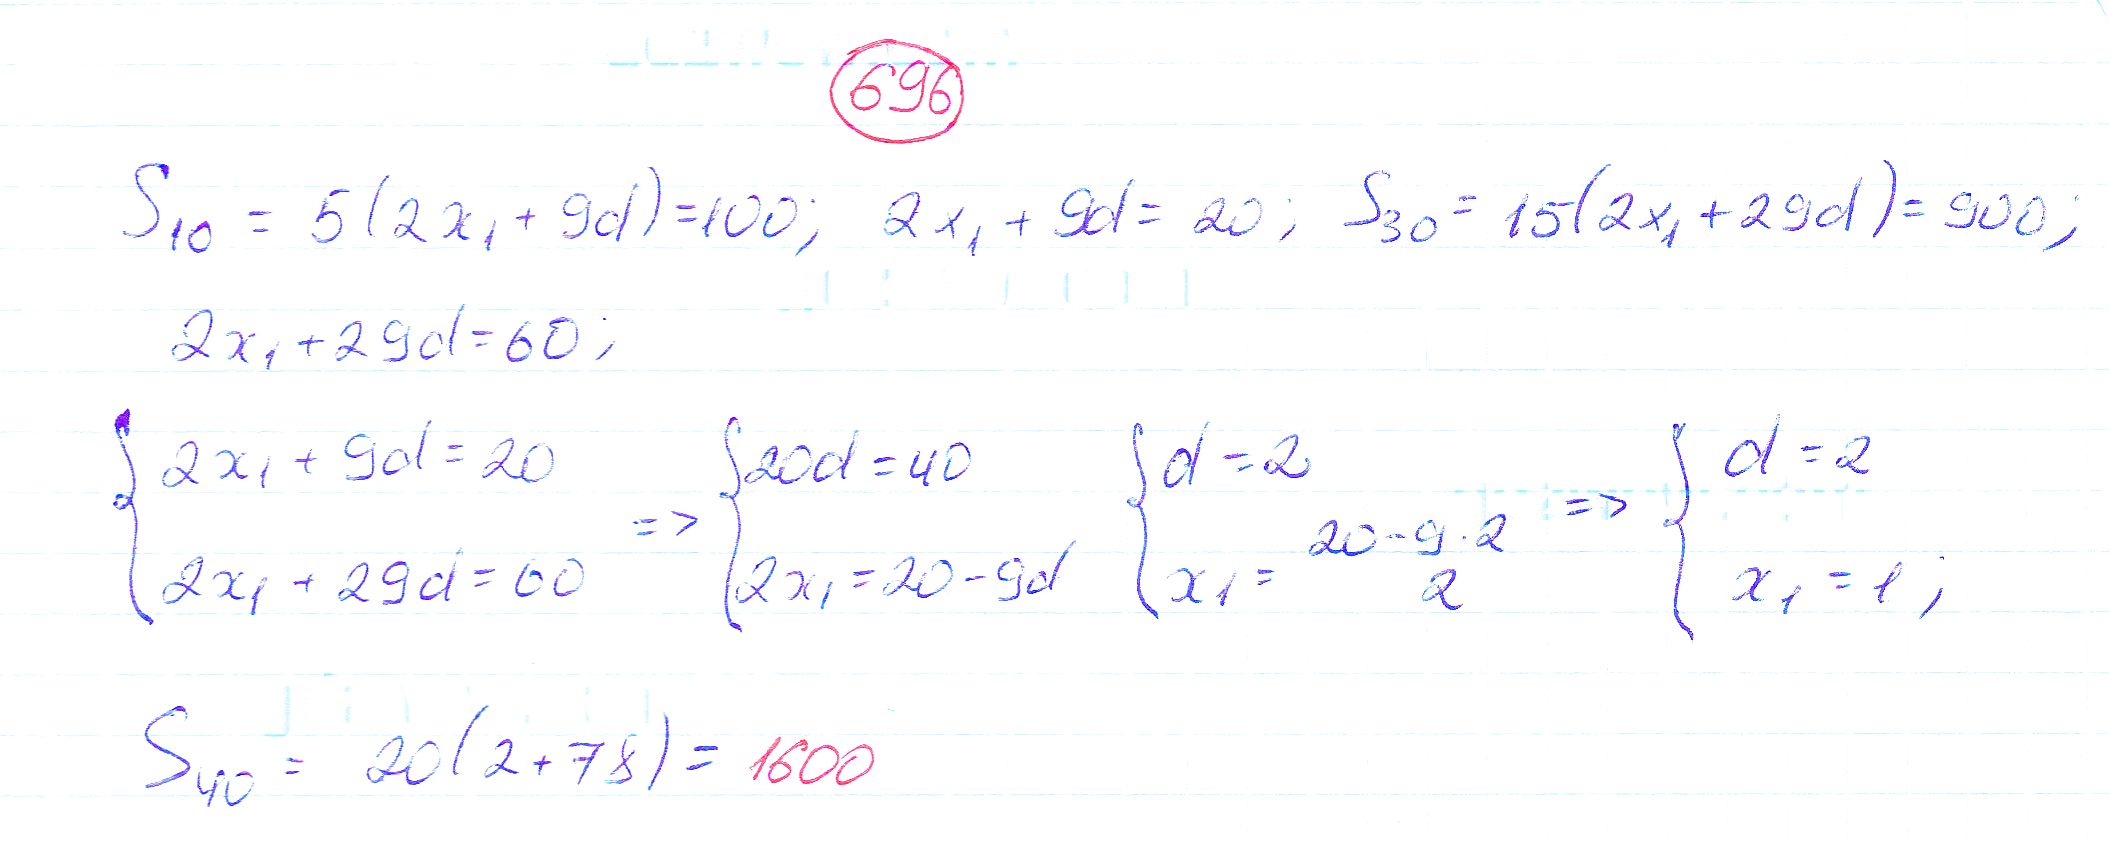 696
S₁₀ = 5(2x₁ + 9d) = 100; 2x₁ + 9d = 20; S₃₀ = 15(2x₁ + 29d) = 900;
2x₁ + 29d = 60;
{ 2x₁ + 9d = 20 { 20d = 40 { d = 2 { d = 2
=> =>
2x₁ + 29d = 60 2x₁ = 20 - 9d x₁ = (20 - 9 · 2)/2 x₁ = 1;
S₄₀ = 20(2 + 78) = 1600